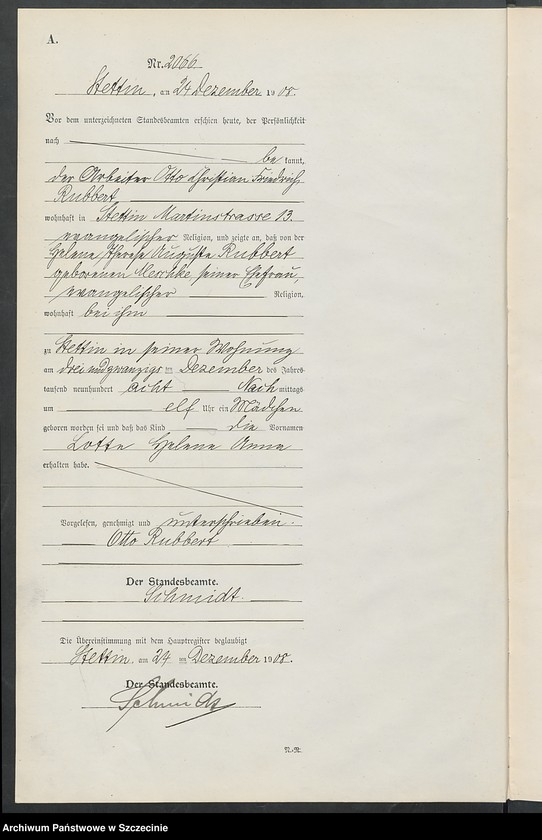 A.
Nr. 2066.
Stettin, am 24 Dezember 1908.
Vor dem unterzeichneten Standesbeamten erschien heute, der Persönlichkeit
nach
bekannt,
der Arbeiter Otto Christian Friedrich
Rubbert
wohnhaft in Stettin Martinstrasse 13.
evangelischer Religion, und zeigte an, daß von der
Helene Therese Auguste Rubbert
geborenen, seiner Ehefrau,
evangelischer Religion,
wohnhaft bei ihm
zu Stettin in seiner Wohnung
am drei und zwanzigs ten Dezember des Jahres
tausend neunhundert acht Nachmittags
um elf Uhr ein Mädchen
geboren worden sei und daß das Kind die Vornamen
Lotte Helene Anna
erhalten habe.
Vorgelesen, genehmigt und unterschrieben.
Otto Rubbert
Der Standesbeamte.
Schmidt.
Die Übereinstimmung mit dem Hauptregister beglaubigt
Stettin, am 24 ten Dezember 1908.
Der Standesbeamte.
Schmidt
Archiwum Państwowe w Szczecinie